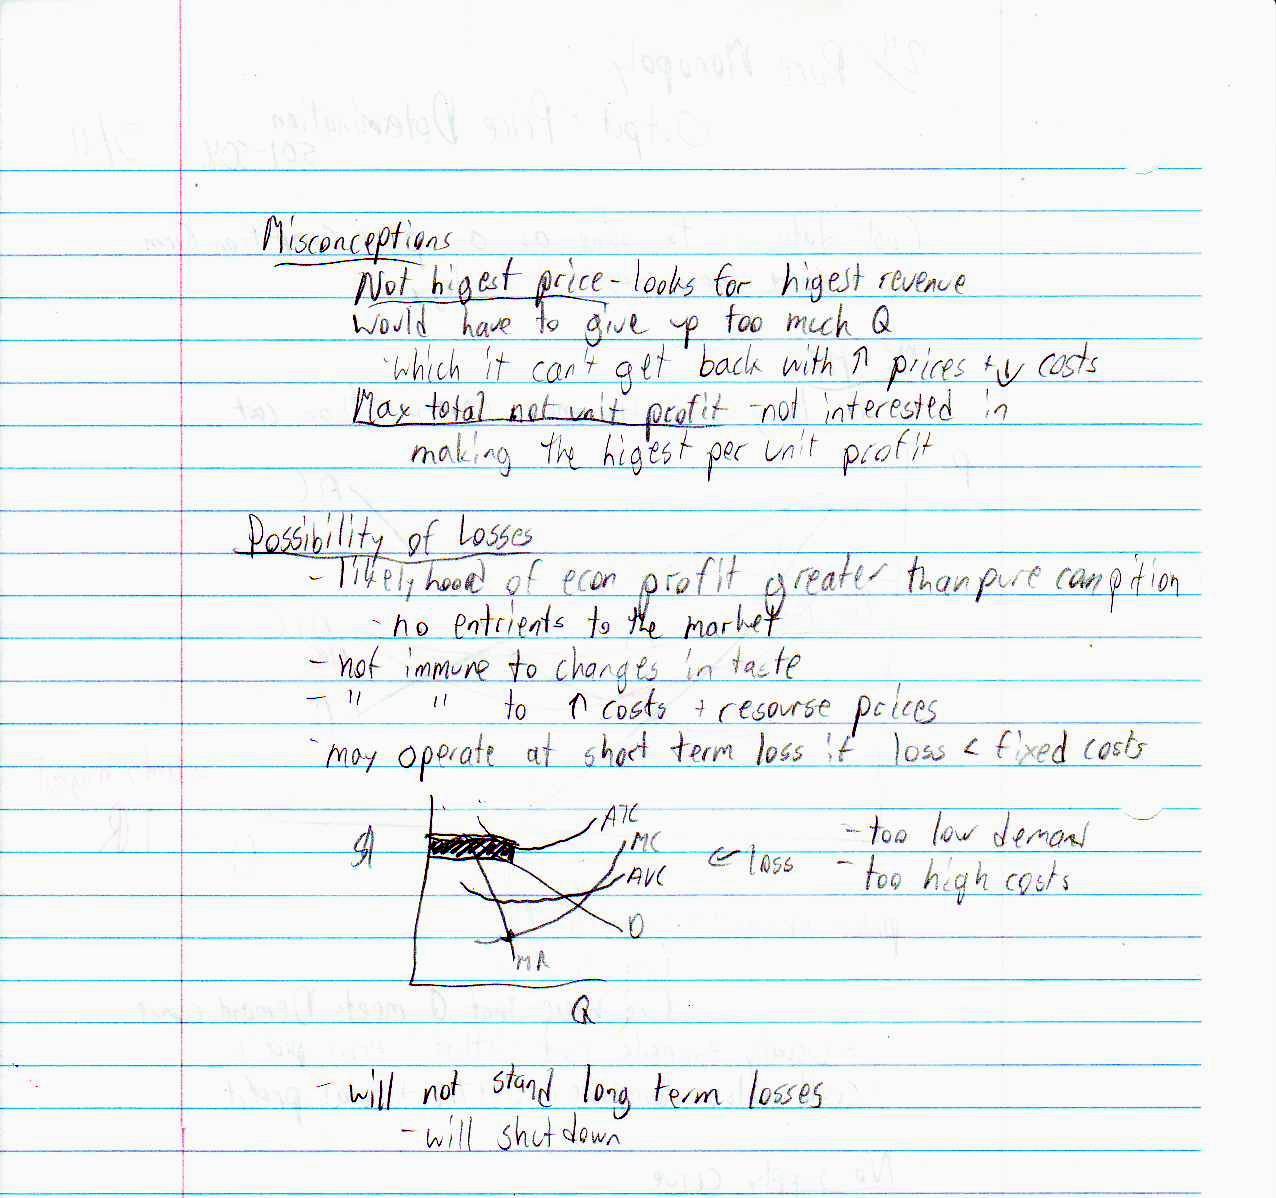 Misconceptions
Not higest price - looks for higest revenue
Would have to give up too much Q
- which it can't get back with ↑ prices + ↓ costs
Max total not unit profit - not interested in
making the higest per unit profit
Possibility of Losses
- likelyhood of econ profit greater than pure compition
- no entrients to the market
- not immune to changes in taste
- " " to ↑ costs + resourse prices
- may operate at short term loss if loss < fixed costs
$
ATC
MC
AVC
D
MR
Q
← loss
- too low demand
- too high costs
- will not stand long term losses
- will shutdown